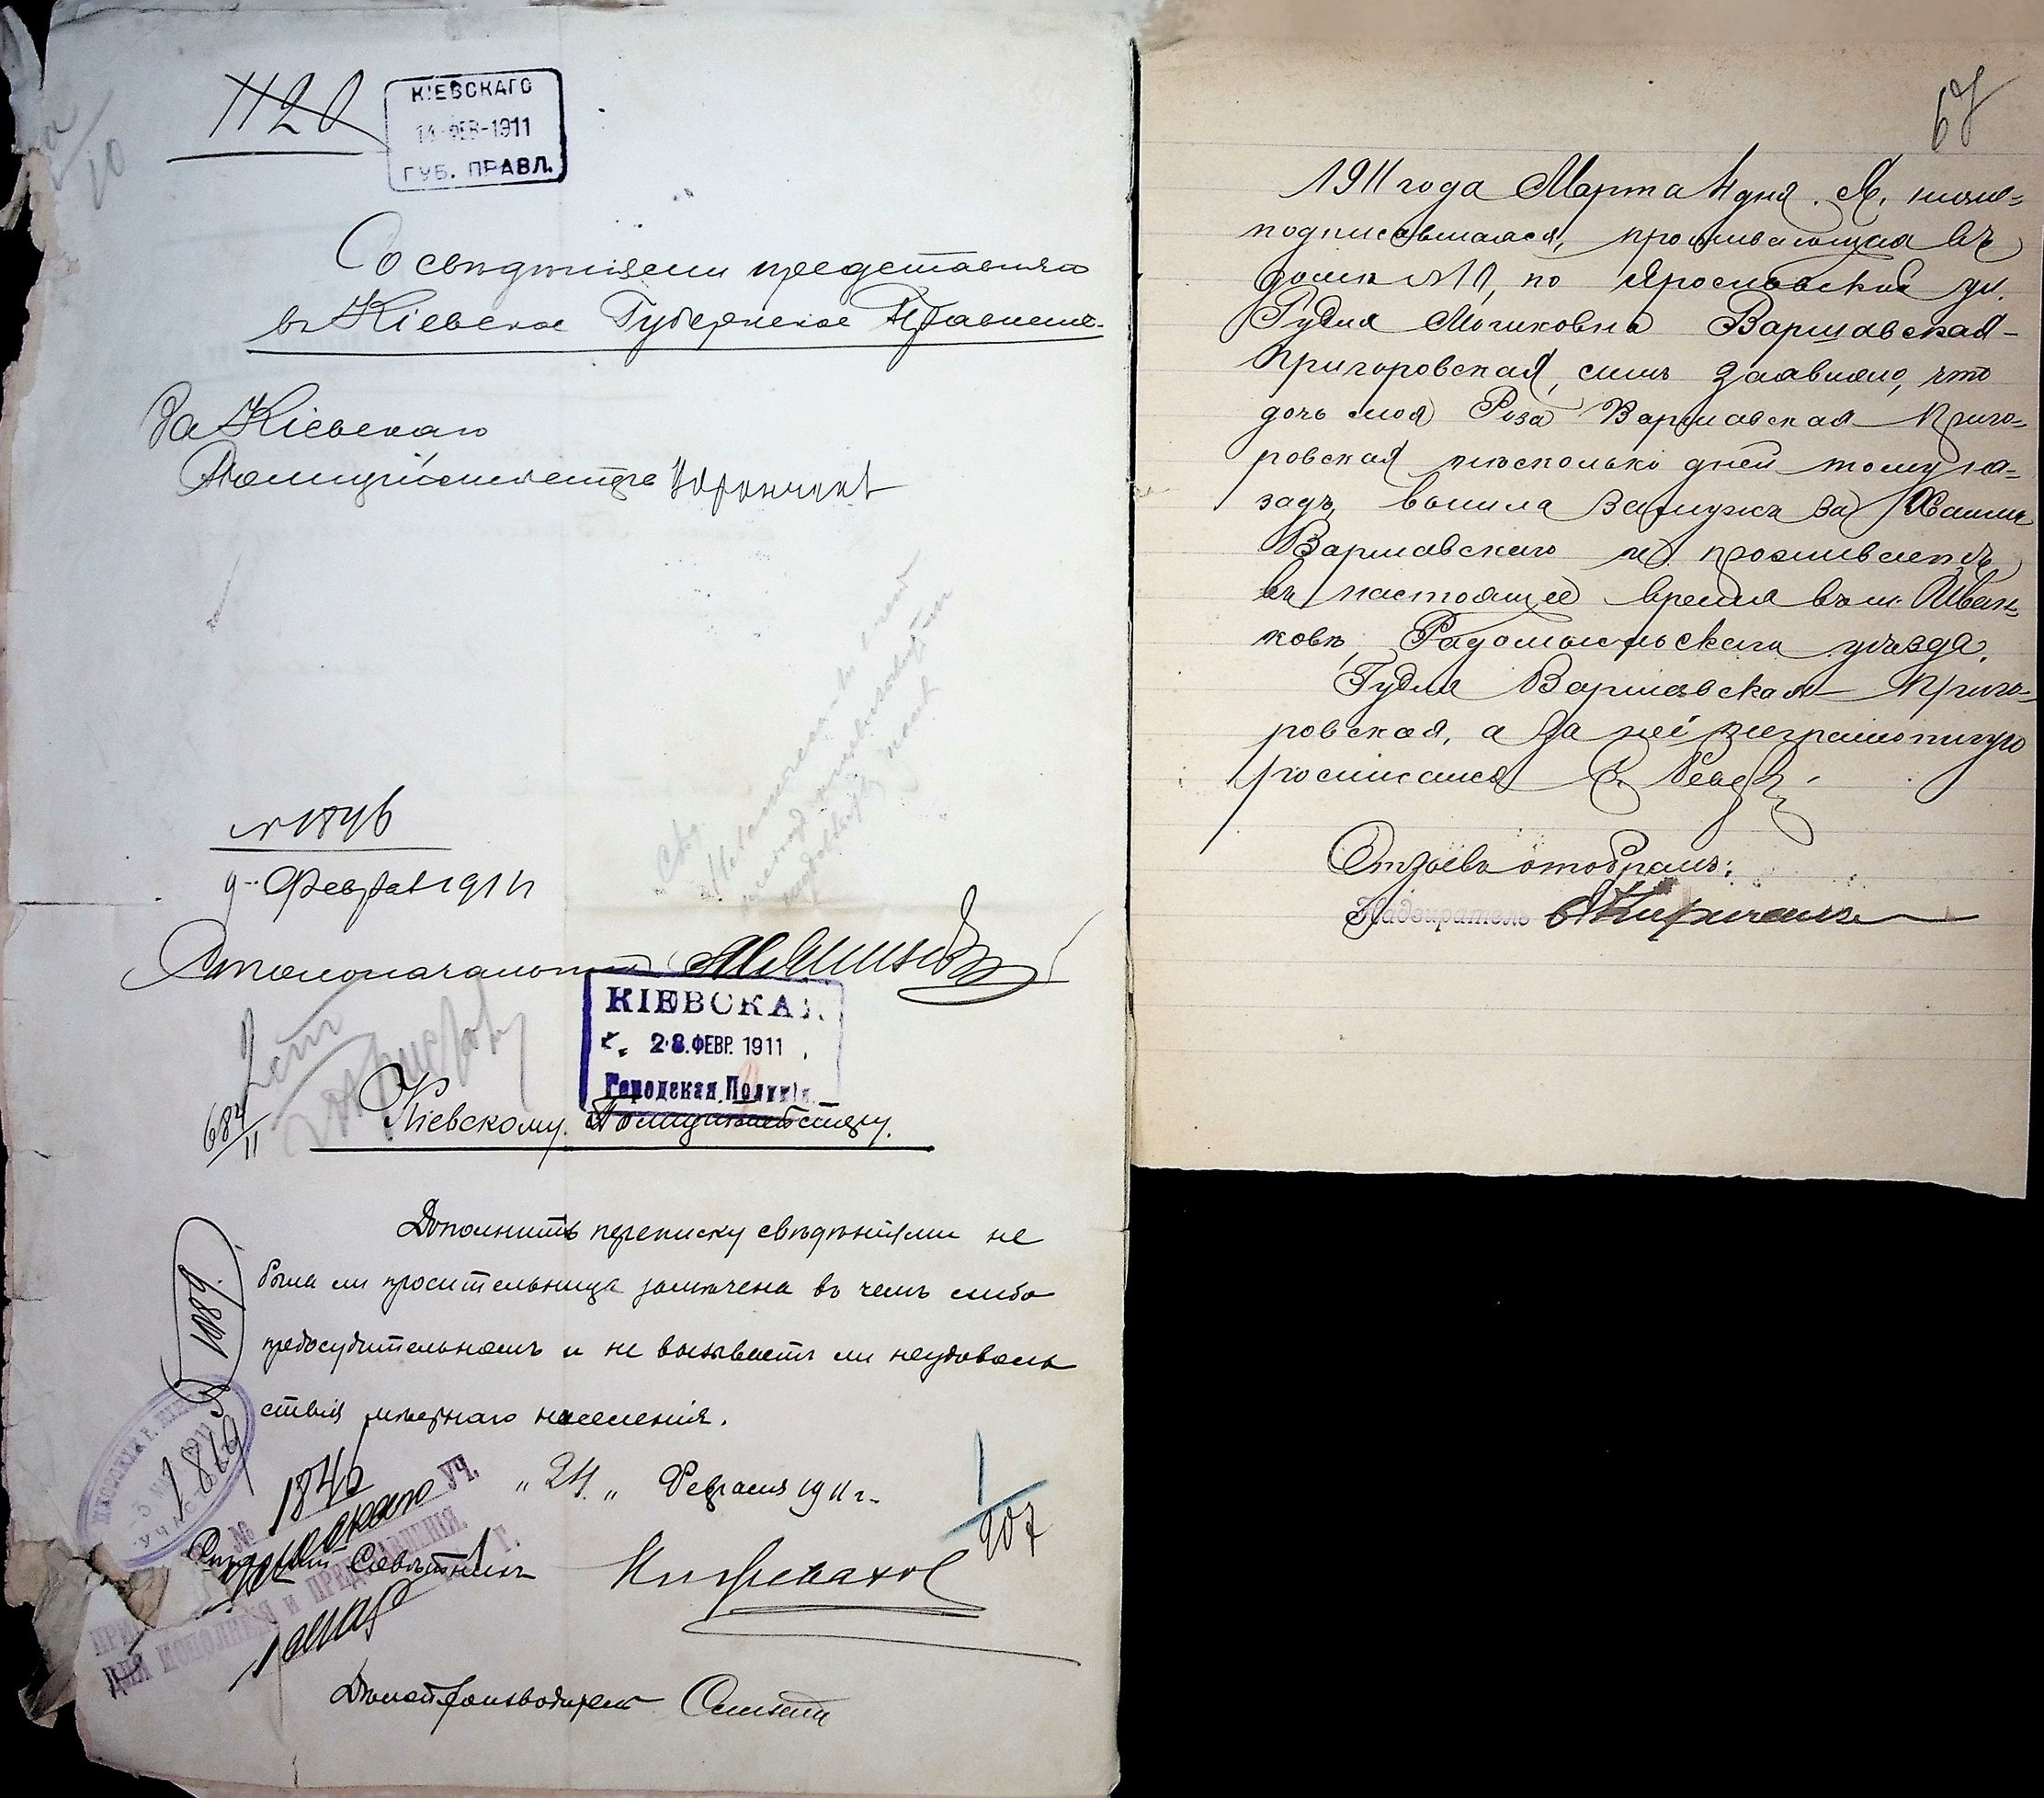 1120
КІЕВСКАГО
14 ФЕВ-1911
ГУБ. ПРАВЛ.
Со свѣдѣніями представляю
въ Кіевское Губернское Правленіе.
За Кіевскаго
Полиціймейстера
№ 1846
9 Февраля 1911
Столоначальникъ
КІЕВСКАЯ
28.ФЕВР. 1911
Городская Полиція
684/11
Кіевскому Полиціймейстеру.
Дополнить переписку свѣдѣніями не
была ли просительница замѣчена въ чемъ либо
предосудительномъ и не вызываетъ ли неудоволь
ствія мѣстнаго населенія.
1889
1819
№ 1846
УЧ.
"24" Февраля 1911 г.
1/207
Совѣтникъ
ДЛЯ ИСПОЛНЕНІЯ И ПРЕДСТАВЛЕНІЯ.
Г.
Дѣлопроизводитель
67
1911 года Марта 4 дня. Я, ниже-
подписавшаяся, проживающая въ
домѣ №10, по Ярославской ул.
Гудля Мошковна Варшавская-
Пригоровская, симъ заявляю, что
дочь моя Роза Варшавская-Приго-
ровская нѣсколько дней тому на-
задъ вышла замужъ за Хаима
Варшавскаго и проживаетъ
въ настоящее время въ м. Иван-
ковѣ, Радомысльскаго уѣзда.
Гудля Варшавская-Приго-
ровская, а за неё неграмотную
росписался
Отзывъ отобралъ:
Надзиратель